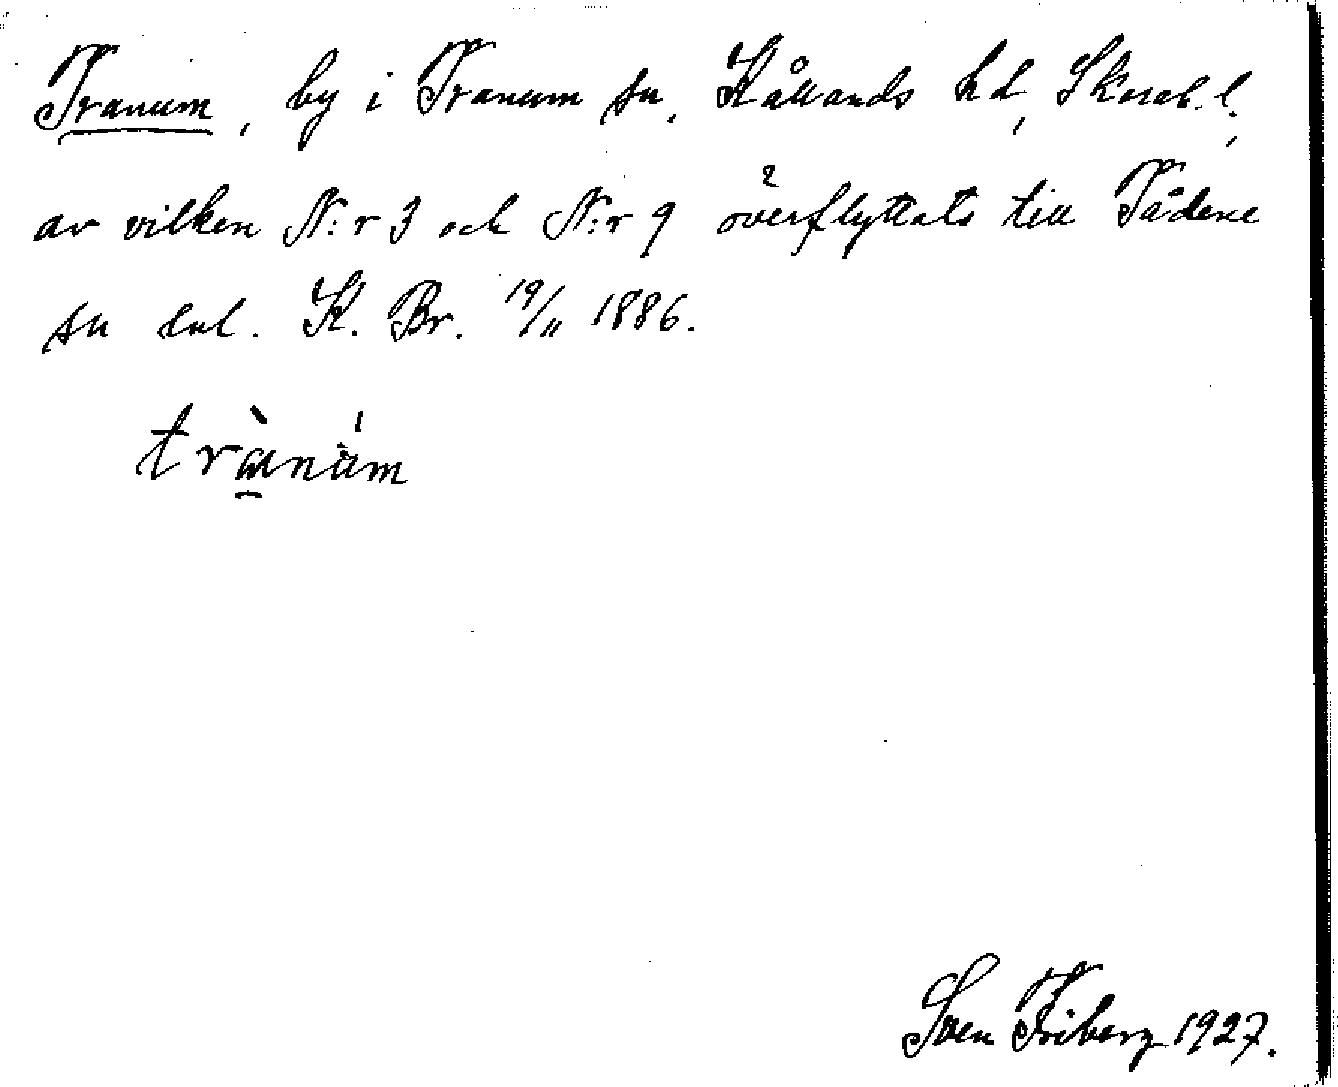 Tranum, by i Tranum sn. Kållands hd, Skarab. l.,
av vilken N:r 3 och N:r 9 överflyttats till Tådene
sn enl. K. Br. 19/11 1886.
trànúm
Sven Friberg 1927.